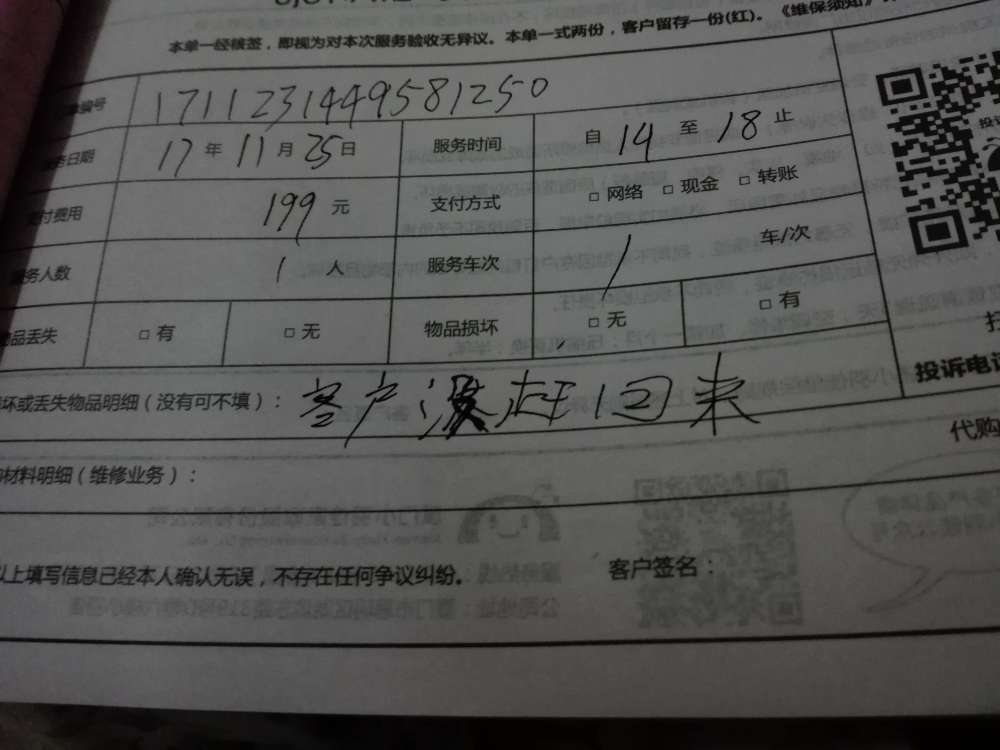 本单一经核签，即视为对本次服务验收无异议。本单一式两份，客户留存一份(红)。《维保须知》
编号 1711231449581250
务日期 17 年 11 月 25 日 服务时间 自 14 至 18 止
支付费用 199 元 支付方式 □ 网络 □ 现金 □ 转账
服务人数 1 人 服务车次 1 车/次
物品丢失 □ 有 □ 无 物品损坏 □ 无 □ 有
坏或丢失物品明细（没有可不填）： 客户没赶回来
投诉电话
代购
材料明细（维修业务）：
以上填写信息已经本人确认无误，不存在任何争议纠纷。 客户签名：